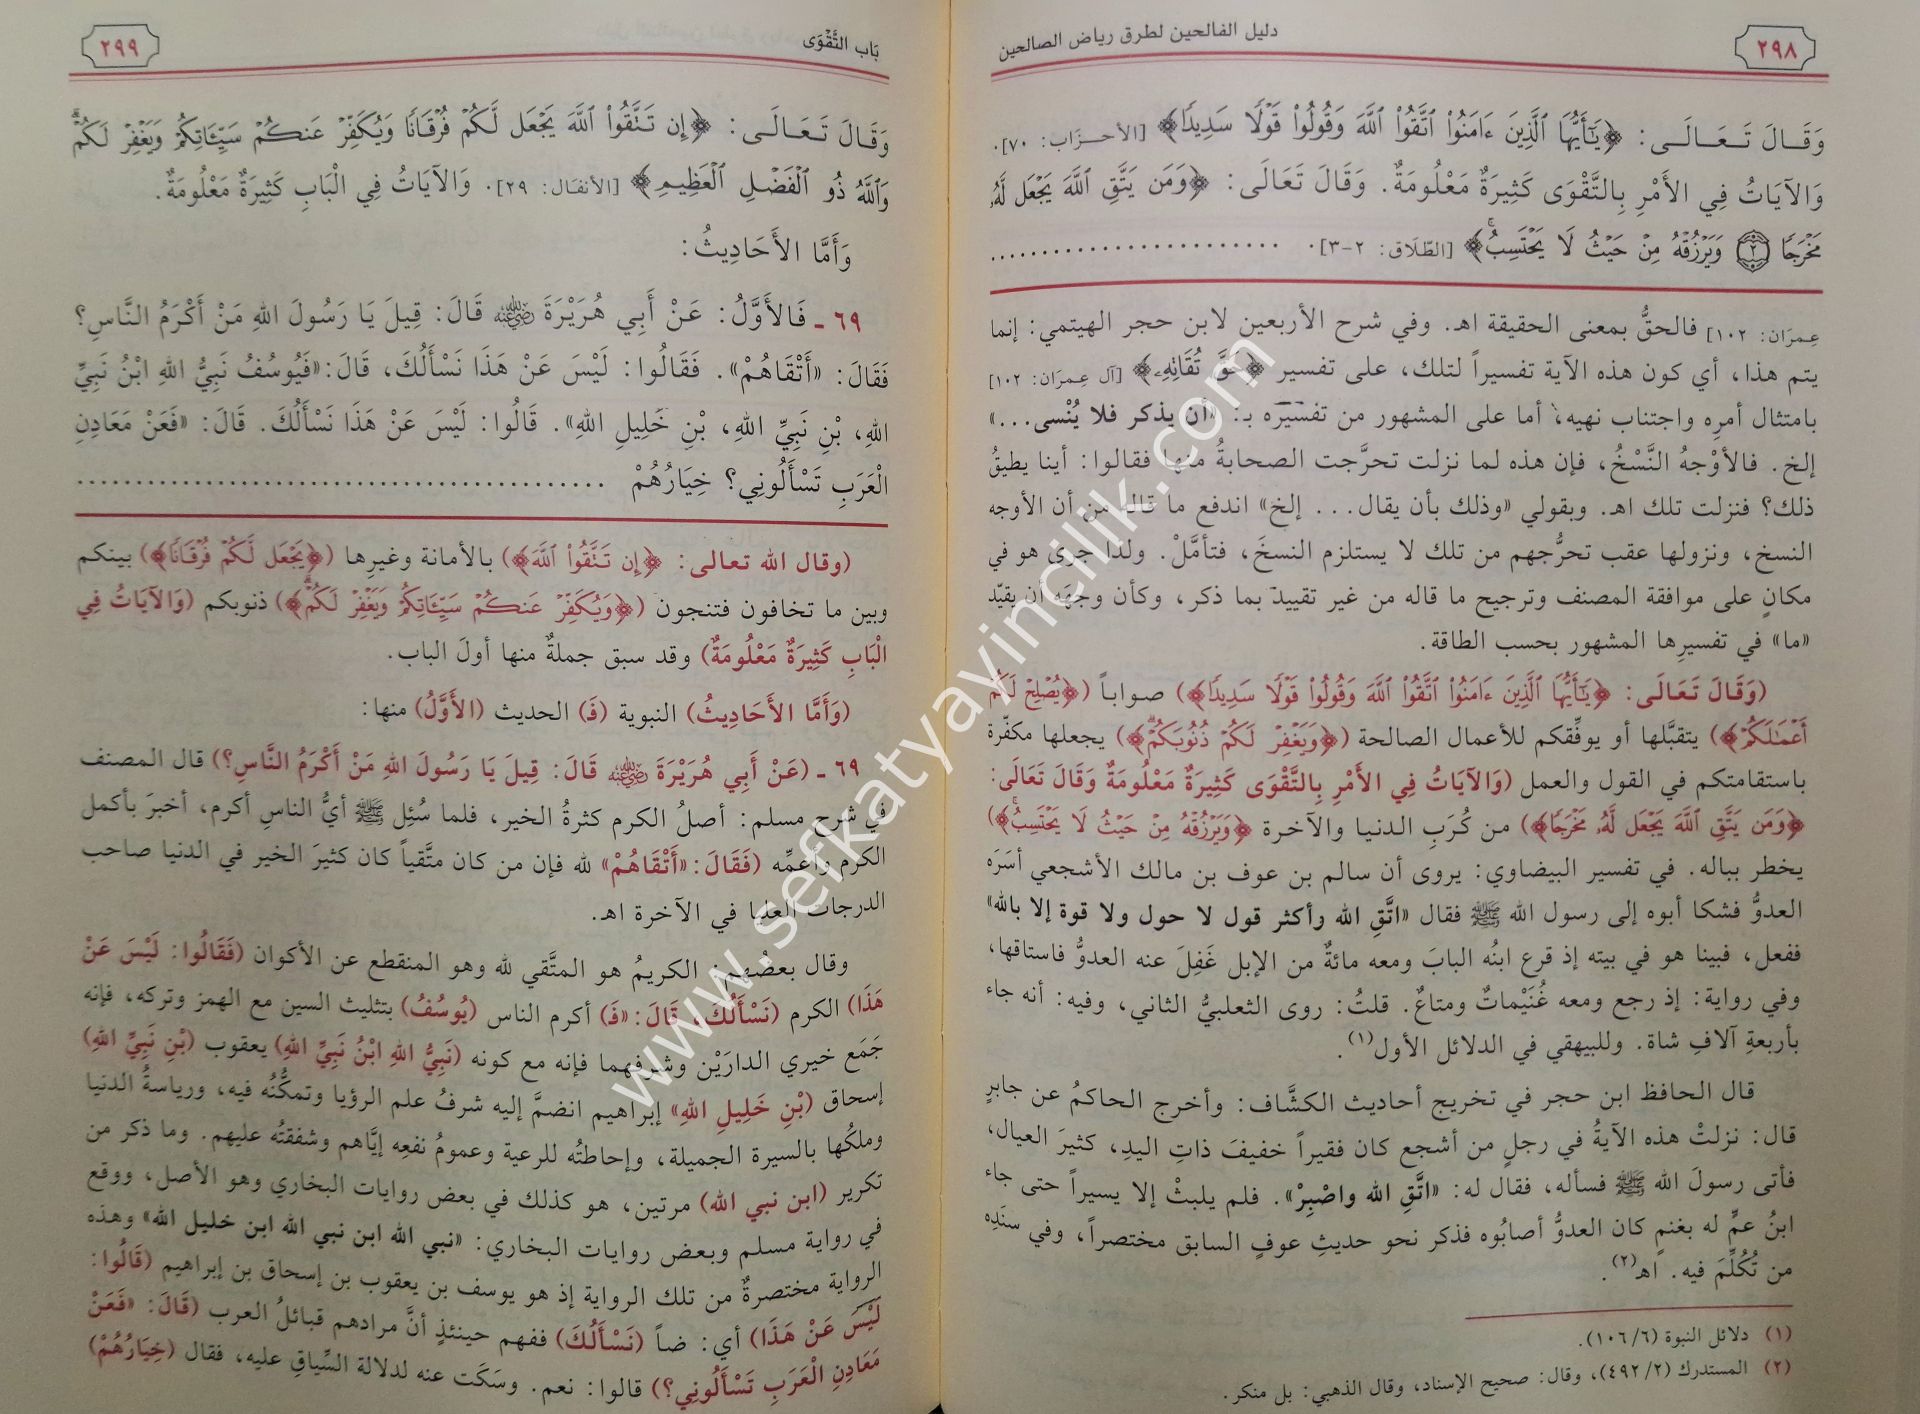 ٢٩٨
دليل الفالحين لطرق رياض الصالحين
وَقَـالَ تَـعَـالَـى: ﴿يَٰٓأَيُّهَا ٱلَّذِينَ ءَامَنُواْ ٱتَّقُواْ ٱللَّهَ وَقُولُواْ قَوۡلٗا سَدِيدٗا﴾ [الأحـزَاب: ٧٠].
وَالآيَاتُ فِي الأَمْرِ بِالتَّقْوَى كَثِيرَةٌ مَعْلُومَةٌ. وَقَالَ تَعَالَى: ﴿وَمَن يَتَّقِ ٱللَّهَ يَجۡعَل لَّهُۥ
مَخۡرَجٗا ٢ وَيَرۡزُقۡهُ مِنۡ حَيۡثُ لَا يَحۡتَسِبُۚ﴾ [الطّلَاق: ٢-٣]. ........................
عِمرَان: ١٠٢] فالحقُّ بمعنى الحقيقة اهـ. وفي شرح الأربعين لابن حجر الهيتمي: إنما
يتم هذا، أي كون هذه الآية تفسيراً لتلك، على تفسير ﴿حَقَّ تُقَاتِهِۦ﴾ [آل عِمرَان: ١٠٢]
بامتثال أمره واجتناب نهيه، أما على المشهور من تفسيره بـ: «أن يذكر فلا يُنْسى...»
إلخ. فالأوْجهُ النَّسْخُ، فإن هذه لما نزلت تحرَّجت الصحابةُ منها فقالوا: أينا يطيقُ
ذلك؟ فنزلت تلك اهـ. وبقولي «وذلك بأن يقال... إلخ» اندفع ما قاله من أن الأوجه
النسخ، ونزولها عقب تحرُّجهم من تلك لا يستلزم النسخَ، فتأمَّلْ. ولذا جرى هو في
مكانٍ على موافقة المصنف وترجيح ما قاله من غير تقييد بما ذكر، وكأن وجهَه أن يقيّد
«ما» في تفسيرِها المشهور بحسب الطاقة.
(وَقَالَ تَعَالَى: ﴿يَٰٓأَيُّهَا ٱلَّذِينَ ءَامَنُواْ ٱتَّقُواْ ٱللَّهَ وَقُولُواْ قَوۡلٗا سَدِيدٗا﴾) صواباً (﴿يُصۡلِحۡ لَكُمۡ
أَعۡمَٰلَكُمۡ﴾) يتقبَّلها أو يوفِّقكم للأعمال الصالحة (﴿وَيَغۡفِرۡ لَكُمۡ ذُنُوبَكُمۡۗ﴾) يجعلها مكفّرة
باستقامتكم في القول والعمل (وَالآيَاتُ فِي الأَمْرِ بِالتَّقْوَى كَثِيرَةٌ مَعْلُومَةٌ وَقَالَ تَعَالَى:
﴿وَمَن يَتَّقِ ٱللَّهَ يَجۡعَل لَّهُۥ مَخۡرَجٗا﴾) من كُرَبِ الدنيا والآخرة ﴿وَيَرۡزُقۡهُ مِنۡ حَيۡثُ لَا يَحۡتَسِبُۚ﴾)
يخطر بباله. في تفسير البيضاوي: يروى أن سالم بن عوف بن مالك الأشجعي أسَرَه
العدوُّ فشكا أبوه إلى رسول الله ﷺ فقال «اتَّقِ الله وأكثر قول لا حول ولا قوة إلا بالله»
ففعل، فبينا هو في بيته إذ قرع ابنُه البابَ ومعه مائةٌ من الإبل غَفِلَ عنه العدوُّ فاستاقها،
وفي رواية: إذ رجع ومعه غُنَيْماتٌ ومتاعٌ. قلتُ: روى الثعلبيُّ الثاني، وفيه: أنه جاء
بأربعةِ آلافِ شاة. وللبيهقي في الدلائل الأول(١).
قال الحافظ ابن حجر في تخريج أحاديث الكشَّاف: وأخرج الحاكمُ عن جابرٍ
قال: نزلتْ هذه الآيةُ في رجلٍ من أشجع كان فقيراً خفيفَ ذاتِ اليدِ، كثيرَ العيال،
فأتى رسولَ الله ﷺ فسأله، فقال له: «اتَّقِ الله واصْبِرْ». فلم يلبثْ إلا يسيراً حتى جاء
ابنُ عمٍّ له بغنمٍ كان العدوُّ أصابُوه فذكر نحو حديثِ عوفٍ السابق مختصراً، وفي سنَدِه
من تُكُلِّمَ فيه. اهـ(٢).
(١) دلائل النبوة (٦/١٠٦).
(٢) المستدرك (٢/٤٩٢)، وقال: صحيح الإسناد، وقال الذهبي: بل منكر.
بَاب التَّقْوَى
٢٩٩
وَقَالَ تَعَالَى: ﴿إِن تَتَّقُواْ ٱللَّهَ يَجۡعَل لَّكُمۡ فُرۡقَانٗا وَيُكَفِّرۡ عَنكُمۡ سَيِّـَٔاتِكُمۡ وَيَغۡفِرۡ لَكُمۡۗ
وَٱللَّهُ ذُو ٱلۡفَضۡلِ ٱلۡعَظِيمِ﴾ [الأنفَال: ٢٩]. وَالآيَاتُ فِي الْبَابِ كَثِيرَةٌ مَعْلُومَةٌ.
وَأَمَّا الأَحَادِيثُ:
٦٩ ـ فَالأَوَّلُ: عَنْ أَبِي هُرَيْرَةَ رضي الله عنه قَالَ: قِيلَ يَا رَسُولَ اللهِ مَنْ أَكْرَمُ النَّاسِ؟
فَقَالَ: «أَتْقَاهُمْ». فَقَالُوا: لَيْسَ عَنْ هَذَا نَسْأَلُكَ، قَالَ: «فَيُوسُفُ نَبِيُّ اللهِ ابْنُ نَبِيِّ
اللهِ، بْنِ نَبِيِّ اللهِ، بْنِ خَلِيلِ اللهِ». قَالُوا: لَيْسَ عَنْ هَذَا نَسْأَلُكَ. قَالَ: «فَعَنْ مَعَادِنِ
الْعَرَبِ تَسْأَلُونِي؟ خِيَارُهُمْ ............................................
(وقال الله تعالى: ﴿إِن تَتَّقُواْ ٱللَّهَ﴾) بالأمانة وغيرِها (﴿يَجۡعَل لَّكُمۡ فُرۡقَانٗا﴾) بينكم
وبين ما تخافون فتنجون (﴿وَيُكَفِّرۡ عَنكُمۡ سَيِّـَٔاتِكُمۡ وَيَغۡفِرۡ لَكُمۡۗ﴾) ذنوبكم (وَالآيَاتُ فِي
الْبَابِ كَثِيرَةٌ مَعْلُومَةٌ) وقد سبق جملةٌ منها أولَ الباب.
(وَأَمَّا الأَحَادِيثُ) النبوية (فَـ) الحديث (الأَوَّلُ) منها:
٦٩ ـ (عَنْ أَبِي هُرَيْرَةَ رضي الله عنه قَالَ: قِيلَ يَا رَسُولَ اللهِ مَنْ أَكْرَمُ النَّاسِ؟) قال المصنف
في شرح مسلم: أصلُ الكرم كثرةُ الخير، فلما سُئِل ﷺ أيُّ الناسِ أكرم، أخبرَ بأكمل
الكرم وأعمِّه (فَقَالَ: «أَتْقَاهُمْ» لله فإن من كان متَّقياً كان كثيرَ الخير في الدنيا صاحب
الدرجات العليا في الآخرة اهـ.
وقال بعضُهم: الكريمُ هو المتَّقي لله وهو المنقطع عن الأكوان (فَقَالُوا: لَيْسَ عَنْ
هَذَا) الكرم (نَسْأَلُكَ، قَالَ: «فَـ) أكرم الناس (يُوسُفُ) بتثليث السين مع الهمز وتركه، فإنه
جَمَع خيري الدارَيْن وشرفهما فإنه مع كونه (نَبِيُّ اللهِ ابْنُ نَبِيِّ اللهِ) يعقوب (بْنِ نَبِيِّ اللهِ)
إسحاق (بْنِ خَلِيلِ اللهِ») إبراهيم انضمَّ إليه شرفُ علم الرؤيا وتمكُّنُه فيه، ورياسةُ الدنيا
وملكُها بالسيرة الجميلة، وإحاطتُه للرعية وعمومُ نفعِه إيَّاهم وشفقتُه عليهم. وما ذكر من
تكرير (ابن نبي الله) مرتين، هو كذلك في بعض روايات البخاري وهو الأصل، ووقع
في رواية مسلم وبعض روايات البخاري: «نبي الله ابن نبي الله ابن خليل الله» وهذه
الرواية مختصرةٌ من تلك الرواية إذ هو يوسف بن يعقوب بن إسحاق بن إبراهيم (قَالُوا:
لَيْسَ عَنْ هَذَا) أي: ضاً (نَسْأَلُكَ) ففهم حينئذٍ أنَّ مرادهم قبائلُ العرب (قَالَ: «فَعَنْ
مَعَادِنِ الْعَرَبِ تَسْأَلُونِي؟) قالوا: نعم. وسَكَت عنه لدلالة السِّياقِ عليه، فقال (خِيَارُهُمْ)
www.sefkatyayincilik.com